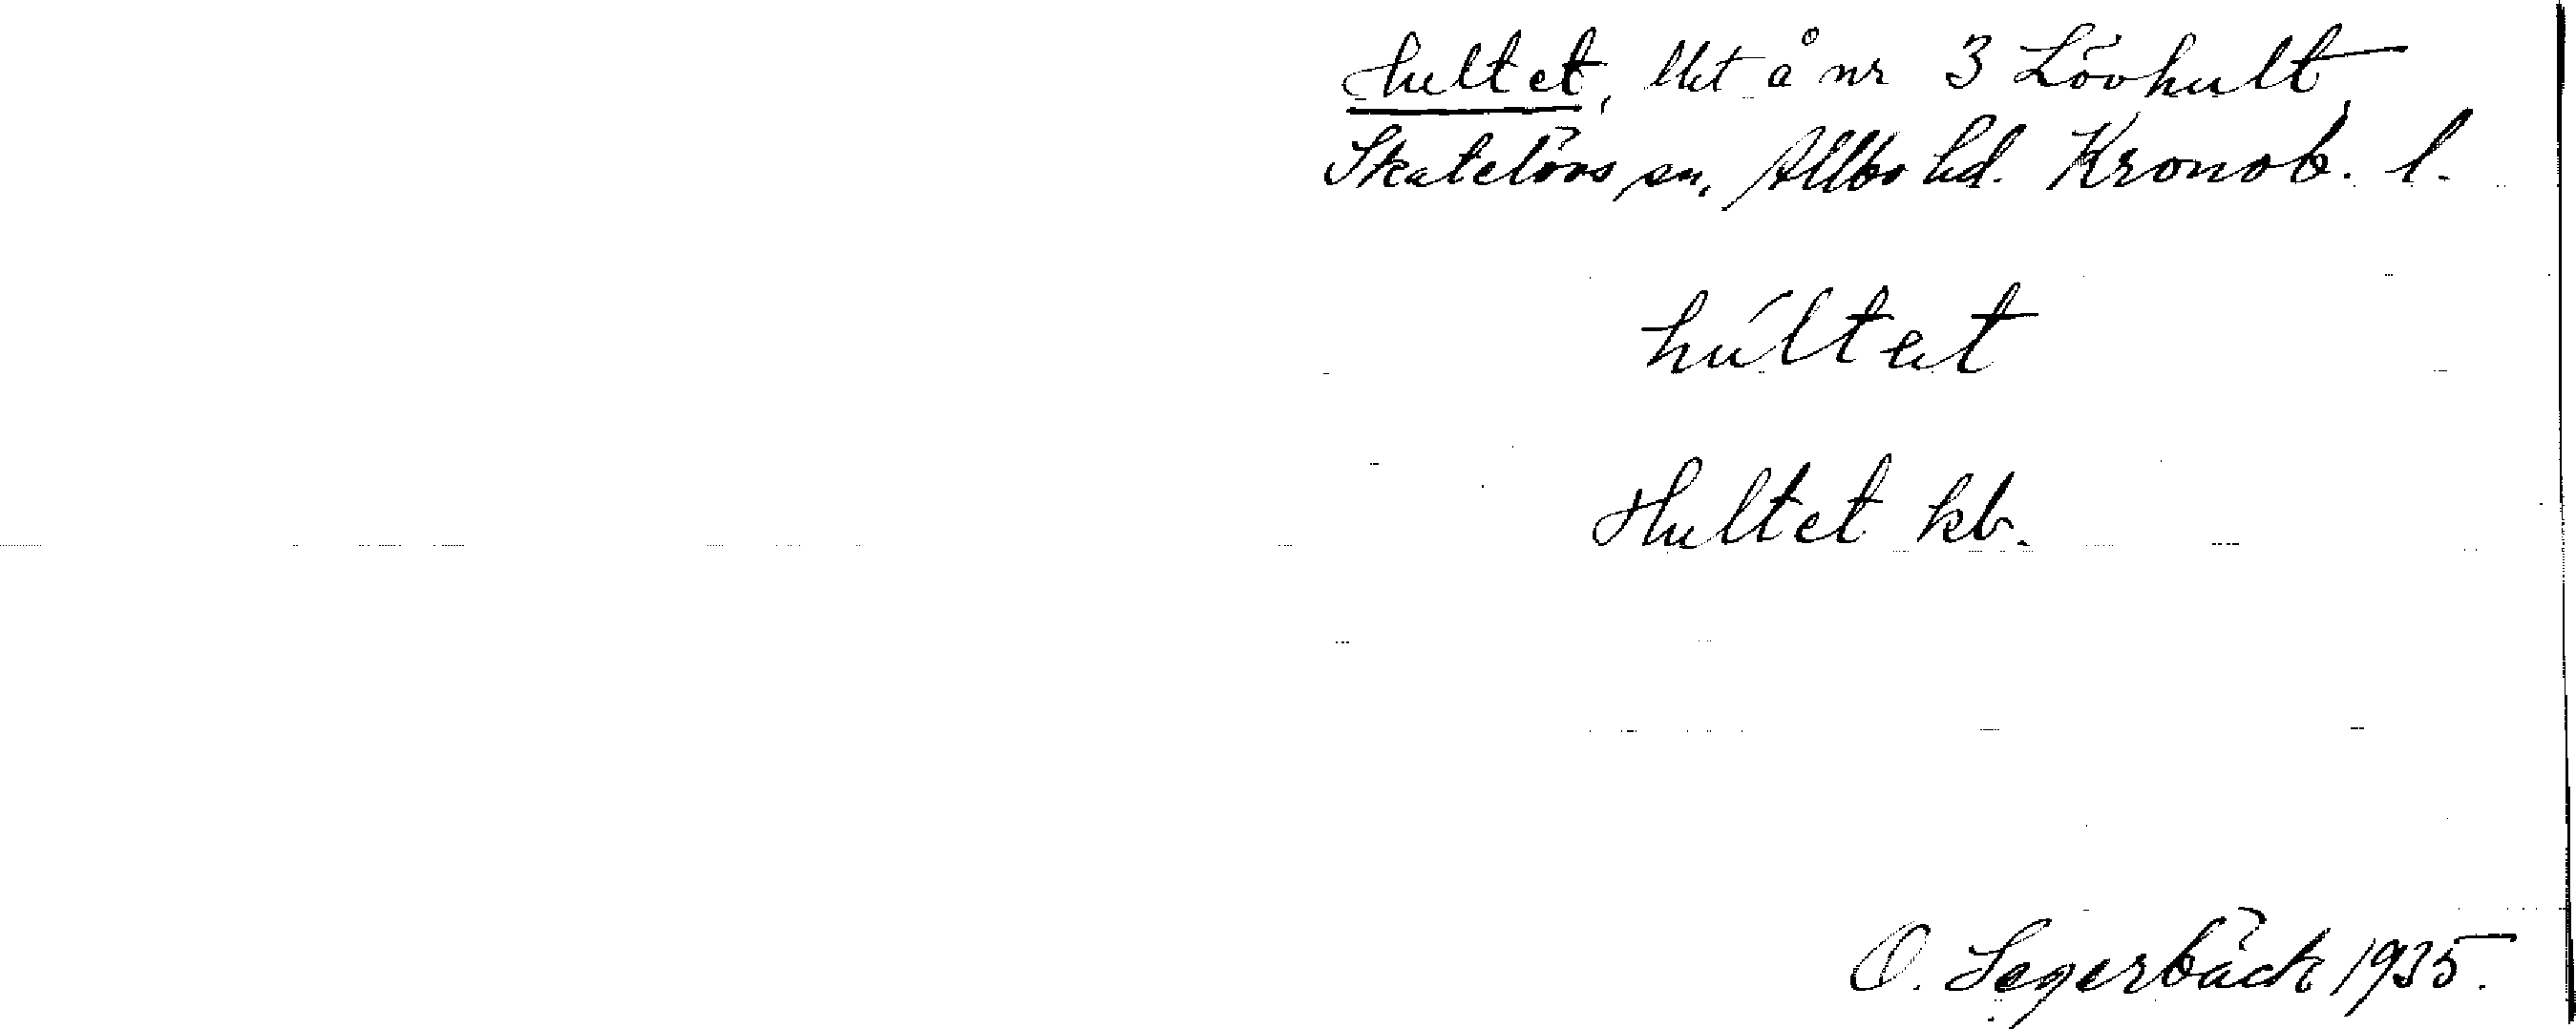 Hultet, lht å nr 3 Lövhult,
Skatelövs sn, Allbo hd. Kronob. l.
húltet
Hultet kb.
O. Segerbäck 1935.